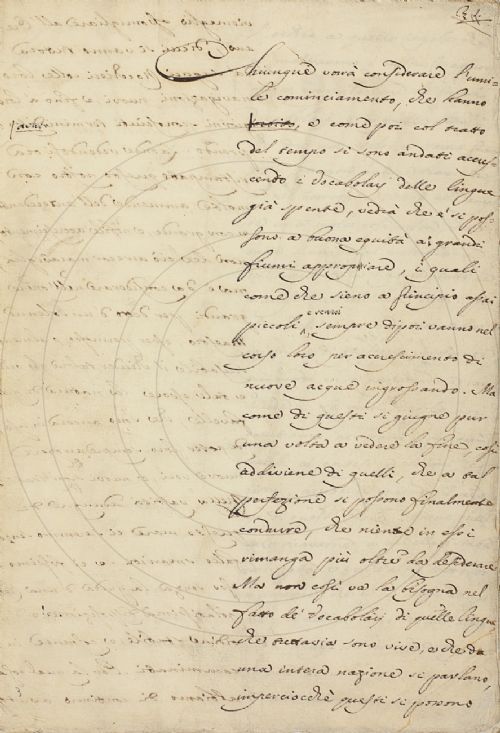 Chiunque vorrà considerare l'umi-
le cominciamento, che hanno
avuto, e come poi col tratto
del tempo si sono andati accre-
scendo i Vocabolarj delle lingue
già spente, vedrà che e' si pos-
sono a buona equità a' grandi
fiumi appropriare, i quali
come che sieno a principio assai
piccoli, e scarsi sempre dipoi vanno nel
corso loro per accrescimento di
nuove acque ingrossando. Ma
come di questi si giugne pur
una volta a vedere la fine, così
addiviene di quelli, che a tal
perfezione si possono finalmente
condurre, che niente in essi
rimanga più oltre da desiderare
Ma non così va la bisogna nel
fatto de' Vocabolarj di quelle lingue
che tuttavia sono vive, e che da
una intera nazione si parlano,
imperciocchè questi si possono